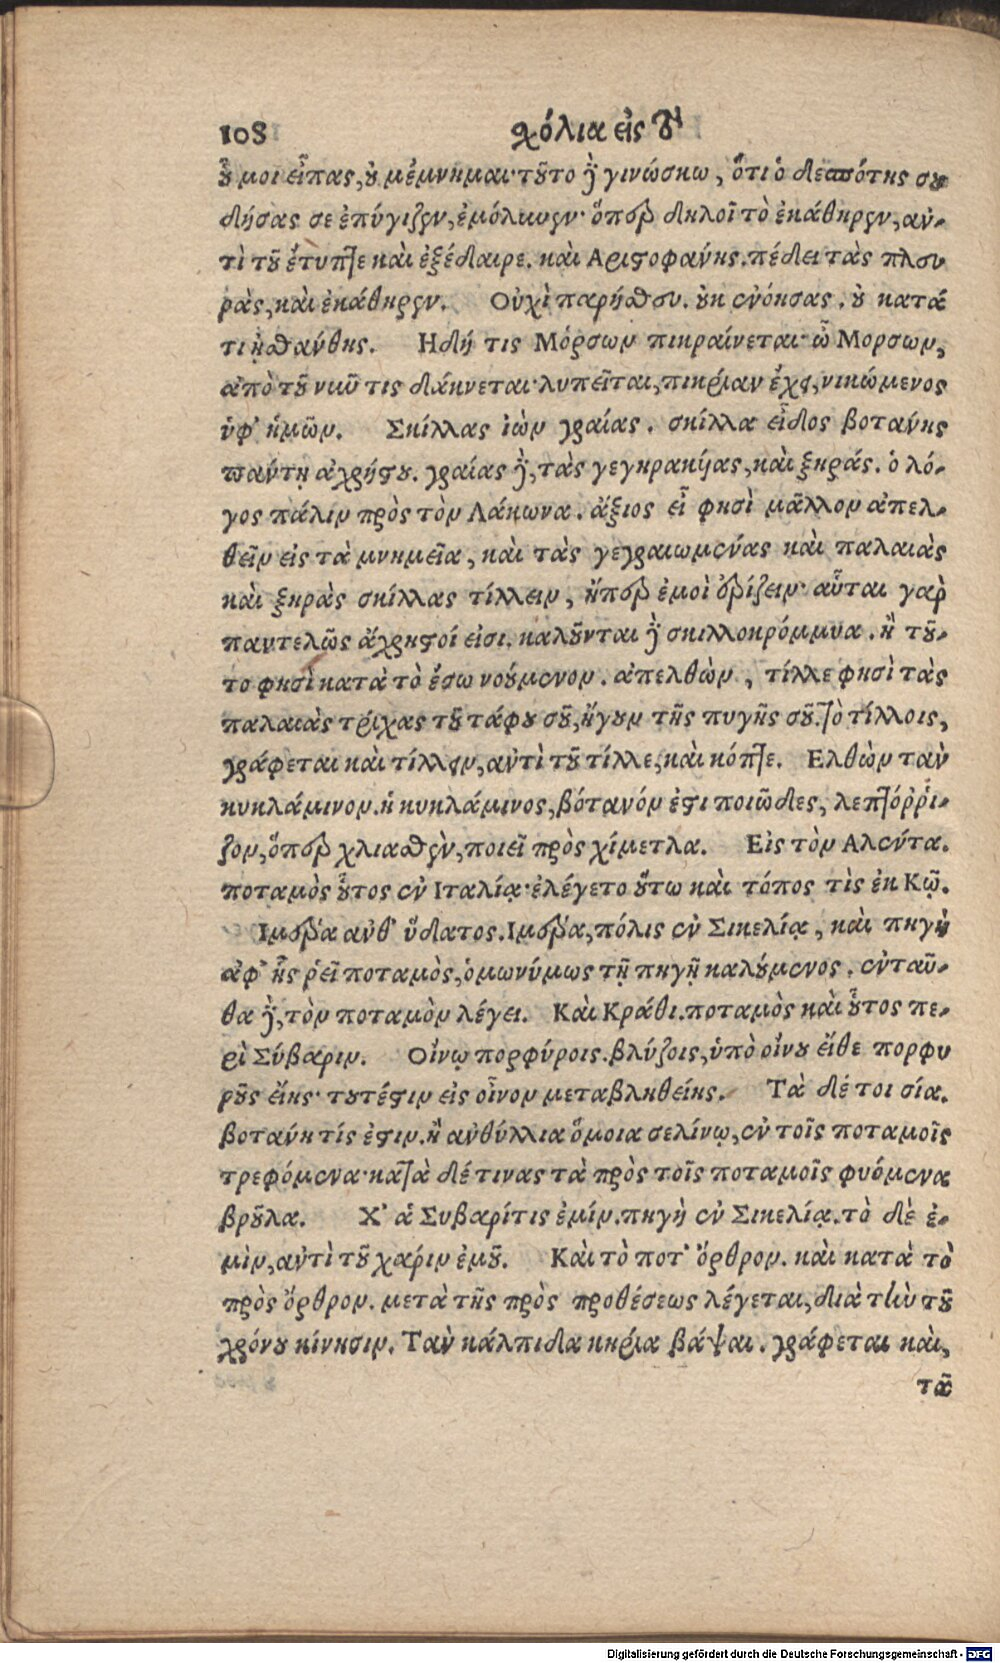 108 σχόλια εἰς τὴν
ὅ μοι εἶπας, οὐ μέμνημαι· τοῦτο δὲ γινώσκω, ὅτι ὁ δεσπότης σου
δήσας σε ἐπύγιζεν, ἐμόλυνεν· ὅπερ δηλοῖ τὸ ἐκάθηρεν, ἀν-
τὶ τοῦ ἔτυπτε καὶ ἐξέδαιρε. καὶ Αριστοφάνης. πέδει τὰς πλευ
ρὰς, καὶ ἐκάθηρεν. Οὐχὶ παρῄσθευ. οὐκ ἐνόησας. οὐ κατά
τι ᾐσθάνθης. Ηδή τις Μόρσων πικραίνεται· ὦ Μορσων,
ἀπὸ τοῦ νικῶ τις δάκνεται· λυπεῖται, πικρίαν ἔχει, νικώμενος
ὑφ' ἡμῶν. Σκίλλας ἰὼν γραίας. σκίλλα εἶδος βοτάνης
πάντη ἀχρήστου. γραίας δὲ, τὰς γεγηρακυίας, καὶ ξηράς. ὁ λό-
γος πάλιν πρὸς τὸν Λάκωνα. ἄξιος εἶ φησὶ μᾶλλον ἀπελ-
θεῖν εἰς τὰ μνημεῖα, καὶ τὰς γεγραιωμένας καὶ παλαιὰς
καὶ ξηρὰς σκίλλας τίλλειν, ἤπερ ἐμοὶ ἐρίζειν· αὗται γαρ
παντελῶς ἄχρηστοί εἰσι. καλοῦνται δὲ σκιλλοκρόμμυα. ἢ τοῦ-
το φησὶ κατὰ τὸ ἔσω νούμενον. ἀπελθὼν, τίλλε φησὶ τὰς
παλαιὰς τρίχας τοῦ τάφου σοῦ, ἤγουν τῆς πυγῆς σοῦ. τὸ τίλλοις,
γράφεται καὶ τίλλειν, ἀντὶ τοῦ τίλλε, καὶ κόπτε. Ελθὼν τὰν
κυκλάμινον. ἡ κυκλάμινος, βότανόν ἐστι ποιῶδες, λεπτόῤῥι-
ζον, ὅπερ χλιασθὲν, ποιεῖ πρὸς χίμετλα. Εἰς τὸν Αλέντα.
ποταμὸς οὗτος ἐν Ιταλίᾳ· ἐλέγετο οὕτω καὶ τόπος τὶς ἐκ Κῷ.
Ιμέρα ἀνθ' ὕδατος. Ιμέρα, πόλις ἐν Σικελίᾳ, καὶ πηγὴ
ἀφ' ἧς ῥεῖ ποταμὸς, ὁμωνύμως τῇ πηγῇ καλούμενος. ἐνταῦ-
θα δὲ, τὸν ποταμὸν λέγει. Καὶ Κράθι. ποταμὸς καὶ οὗτος πε-
ρὶ Σύβαριν. Οἴνῳ πορφύροις. βλύζοις, ὑπὸ οἴνου εἴθε πορφυ
ροῦς εἴης· τουτέστιν εἰς οἶνον μεταβληθείης. Τὰ δέ τοι σία.
βοτάνη τίς ἐστιν. ἢ ἀνθύλλια ὅμοια σελίνῳ, ἐν τοῖς ποταμοῖς
τρεφόμενα· κατὰ δέ τινας τὰ πρὸς τοῖς ποταμοῖς φυόμενα
βρῦλα. Χ' ἁ Συβαρίτις ἐμίν. πηγὴ ἐν Σικελίᾳ. τὸ δὲ ἐ-
μὶν, ἀντὶ τοῦ χάριν ἐμοῦ. Καὶ τὸ ποτ' ὄρθρον. καὶ κατὰ τὸ
πρὸς ὄρθρον. μετὰ τῆς πρὸς προθέσεως λέγεται, διὰ τὴν τοῦ
χρόνου κίνησιν. Τὰν κάλπιδα κηρία βάψαι. γράφεται καὶ,
τᾶ
Digitalisierung gefördert durch die Deutsche Forschungsgemeinschaft - DFG